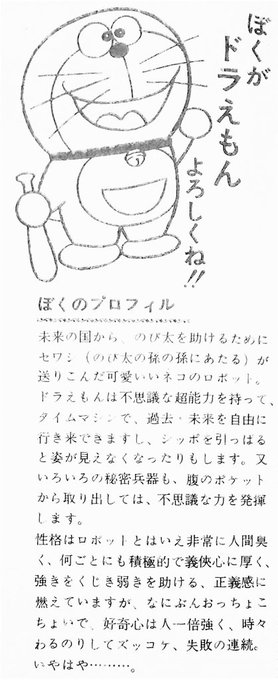 ぼくが
ドラえもん
よろしくね!!
ぼくのプロフィル
未来の国から、のび太を助けるために
セワシ(のび太の孫の孫にあたる)が
送りこんだ可愛いいネコのロボット。
ドラえもんは不思議な超能力を持って、
タイムマシンで、過去・未来を自由に
行き来できますし、シッポを引っぱる
と姿が見えなくなったりもします。又
いろいろの秘密兵器も、腹のポケット
から取り出しては、不思議な力を発揮
します。
性格はロボットとはいえ非常に人間臭
く、何ごとにも積極的で義侠心に厚く、
強きをくじき弱きを助ける、正義感に
燃えていますが、なにぶんおっちょこ
ちょいで、好奇心は人一倍強く、時々
わるのりしてズッコケ、失敗の連続。
いやはや………。